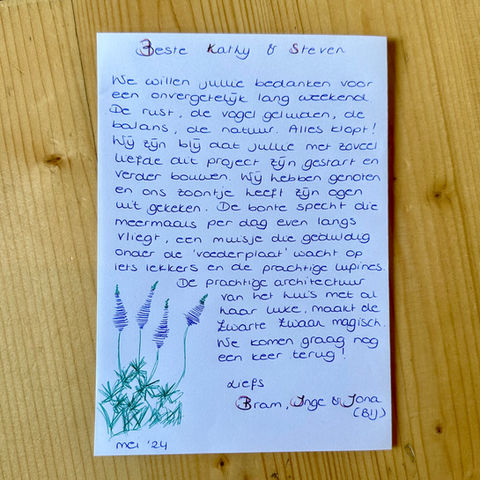 Beste Kathy & Steven
We willen jullie bedanken voor
een onvergetelijk lang weekend.
De rust, de vogel geluiden, de
balans, de natuur. Alles klopt!
Wij zijn blij dat jullie met zoveel
liefde dit project zijn gestart en
verder bouwen. Wij hebben genoten
en ons zoontje heeft zijn ogen
uit gekeken. De bonte specht die
meermaals per dag even langs
vliegt, een muisje die geduldig
onder de 'voederplaat' wacht op
iets lekkers en de prachtige lupines.
De prachtige architectuur
van het huis met al
haar luxe, maakt de
Zwarte Zwaan magisch.
We komen graag nog
een keer terug!
Liefs
Bram, Inge & Jona
(Bij)
mei '24